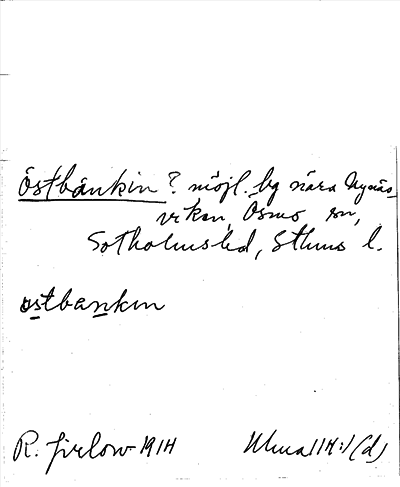 östbänkin ? möjl. by nära Nynäs-
viken, Ösmo sn,
Sotholms hd, Sthms l.
östbankın
R. Jirlow 1914